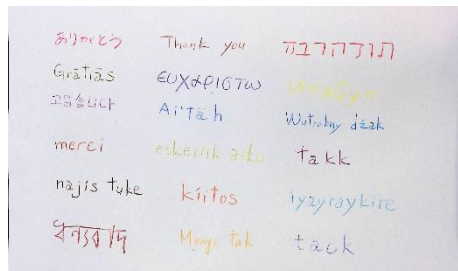 ありがとう Thank you תודה רבה
Grātiās ευχαριστω
고맙습니다 Aitäh Wutrobny dźak
merci eskerrik asko takk
najis tuke kiitos iyayraykire
ধন্যবাদ Mange tak tack